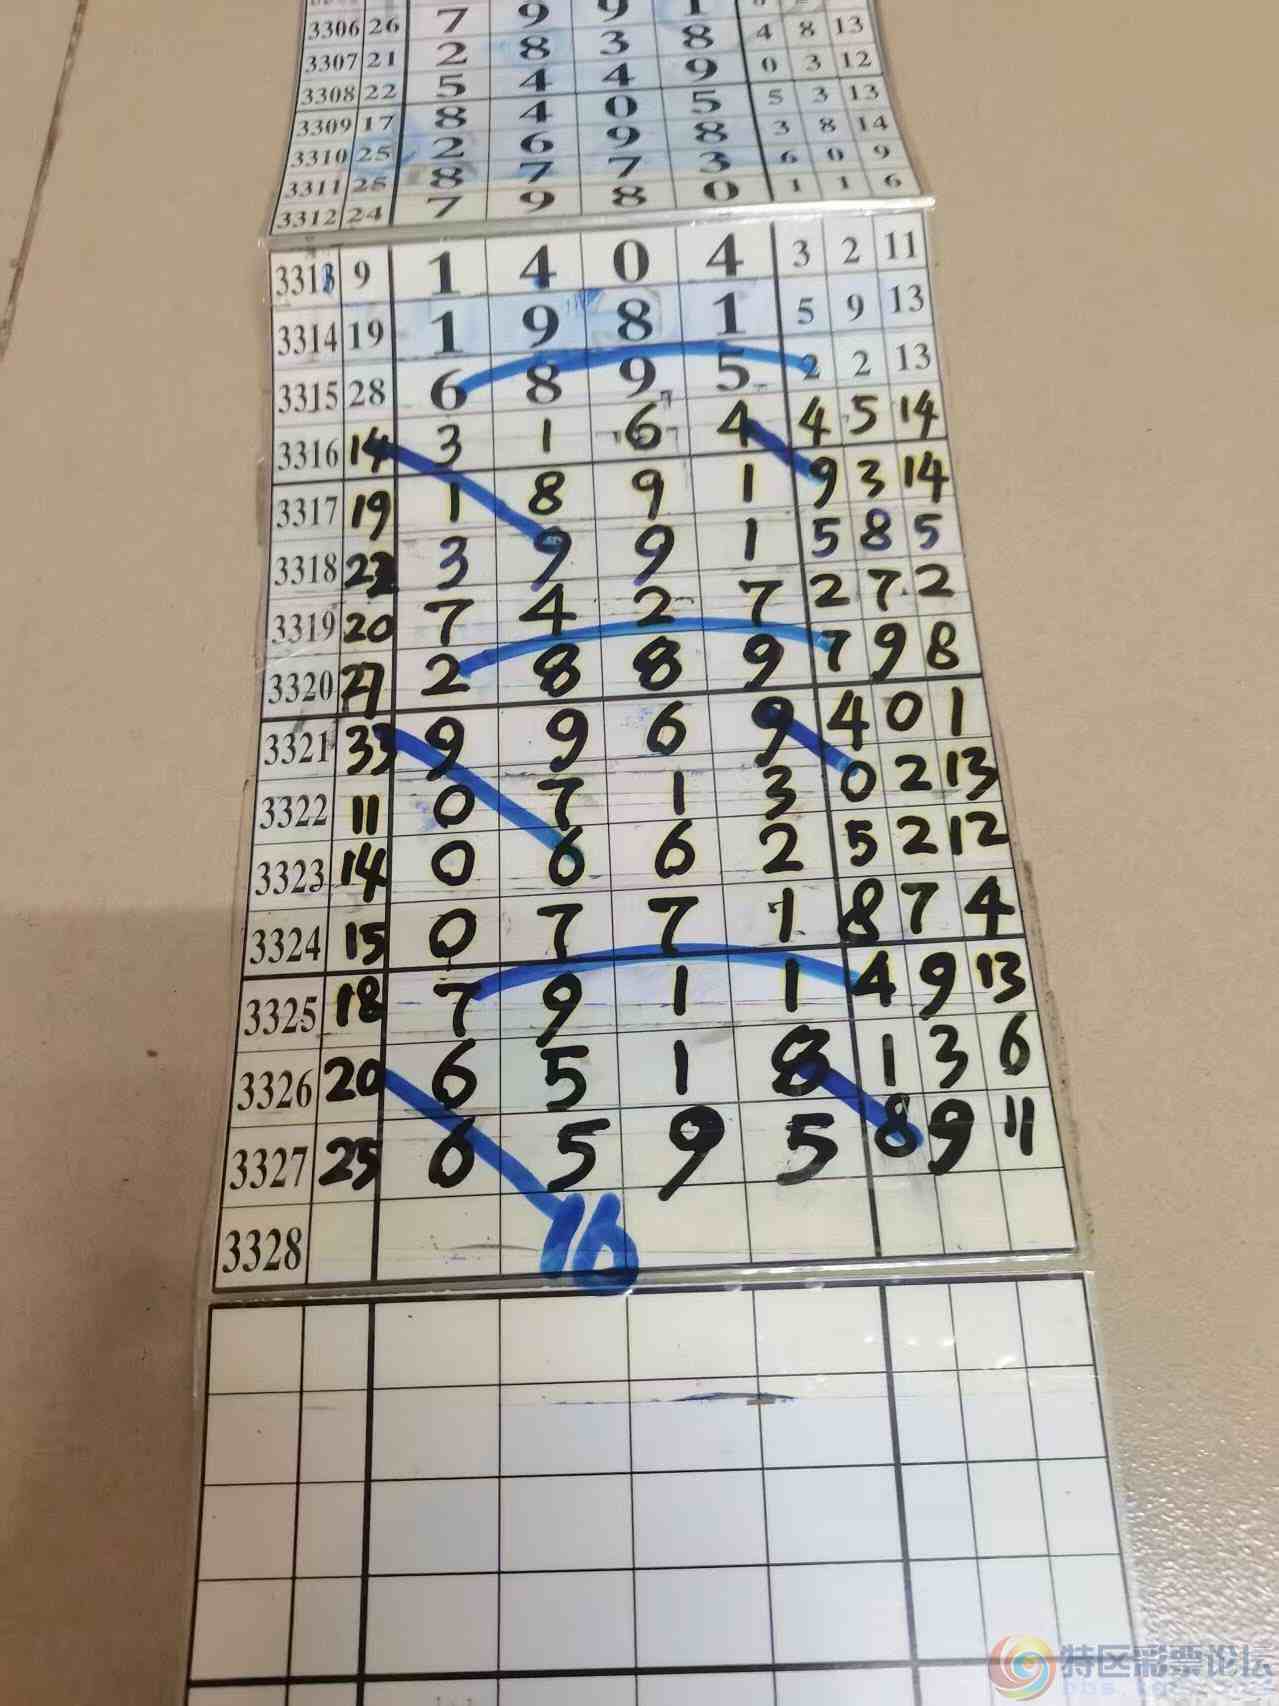 7 9 9 1
3306 26 2 8 3 8 4 8 13
3307 21 5 4 4 9 0 3 12
3308 22 8 4 0 5 5 3 13
3309 17 2 6 9 8 3 8 14
3310 25 8 7 7 3 6 0 9
3311 25 7 9 8 0 1 1 6
3312 24
3313 9 1 4 0 4 3 2 11
3314 19 1 9 8 1 5 9 13
3315 28 6 8 9 5 2 2 13
3316 14 3 1 6 4 4 5 14
3317 19 1 8 9 1 9 3 14
3318 22 3 9 9 1 5 8 5
3319 20 7 4 2 7 2 7 2
3320 27 2 8 8 9 7 9 8
3321 33 9 9 6 9 4 0 1
3322 11 0 7 1 3 0 2 13
3323 14 0 6 6 2 5 2 12
3324 15 0 7 7 1 8 7 4
3325 18 7 9 1 1 4 9 13
3326 20 6 5 1 8 1 3 6
3327 25 6 5 9 5 8 9 11
3328 16
特区彩票论坛